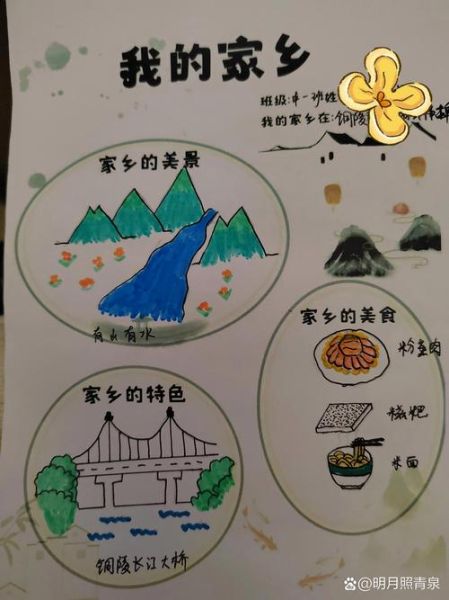 我的家乡
班级:中一班姓
我的家乡在:铜陵
家乡的美景
有山有水
家乡的美食
粉蒸肉
糍粑
米面
家乡的特色
铜陵长江大桥
百家号/明月照青泉